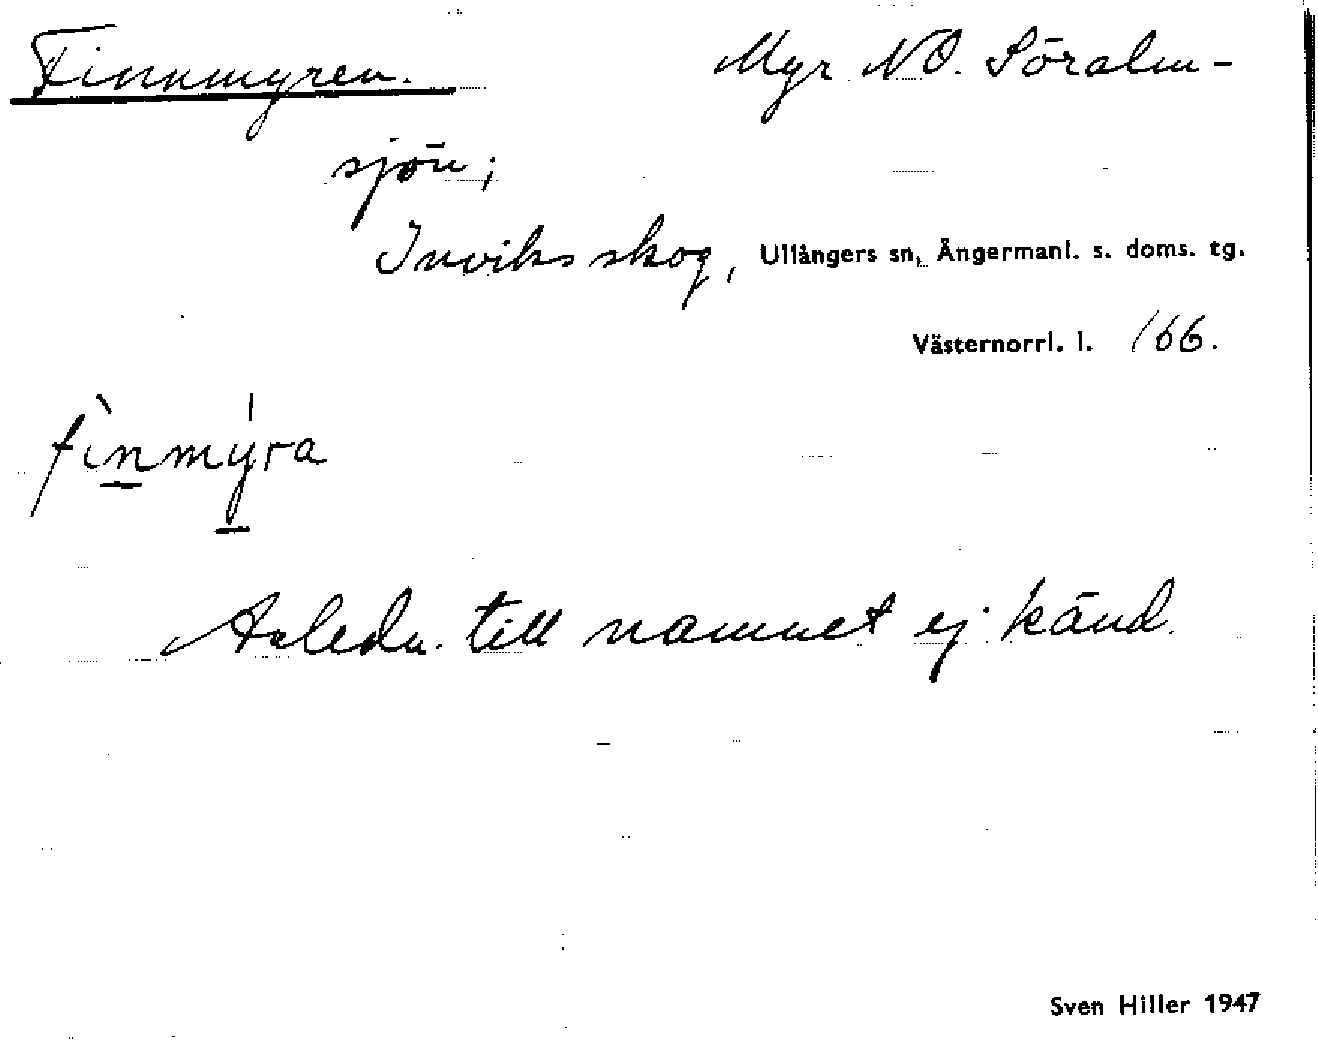 Finnmyren. Myr NO. Söralm-
sjön;
Inviks skog, Ullångers sn, Ångermanl. s. doms. tg.
Västernorrl. l. 166.
fìnmýra
Anledn. till namnet ej känd.
Sven Hiller 1947